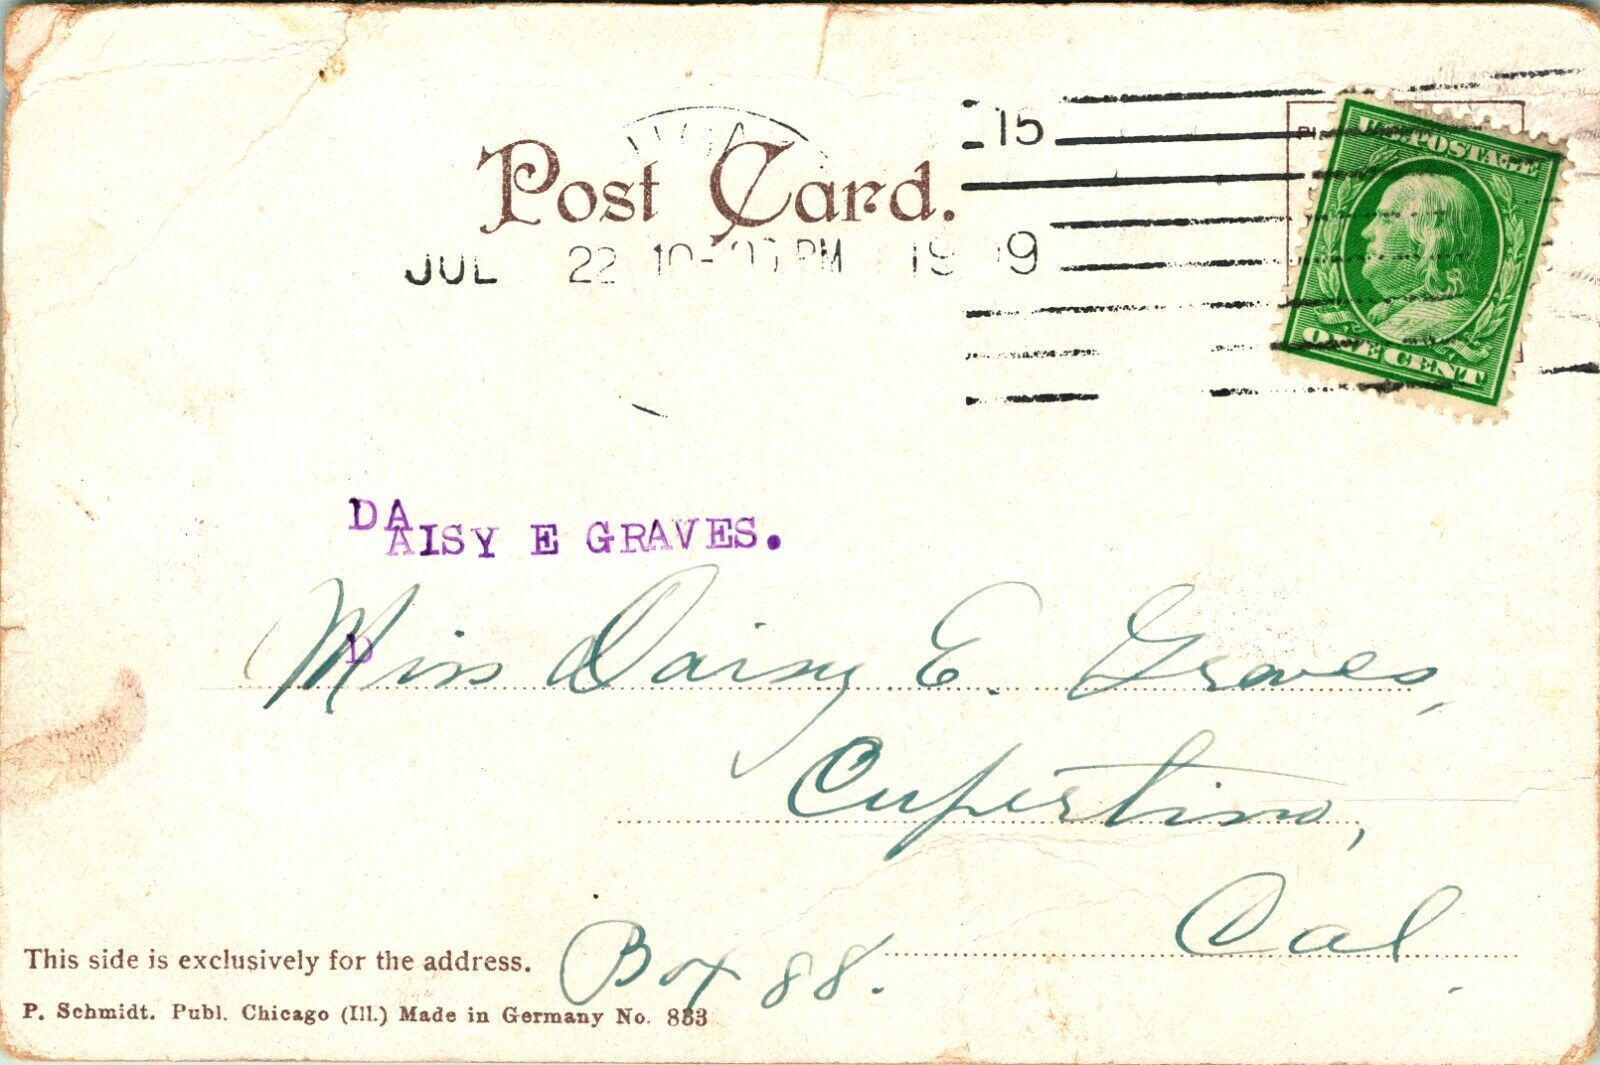 15
Post Card.
JUL 22 PM 1909
U.S. POSTAGE
ONE CENT
DA
AISY E GRAVES.
D
Miss Daisy E. Graves,
Cupertino,
Cal.
Box 88.
This side is exclusively for the address.
P. Schmidt. Publ. Chicago (Ill.) Made in Germany No. 833